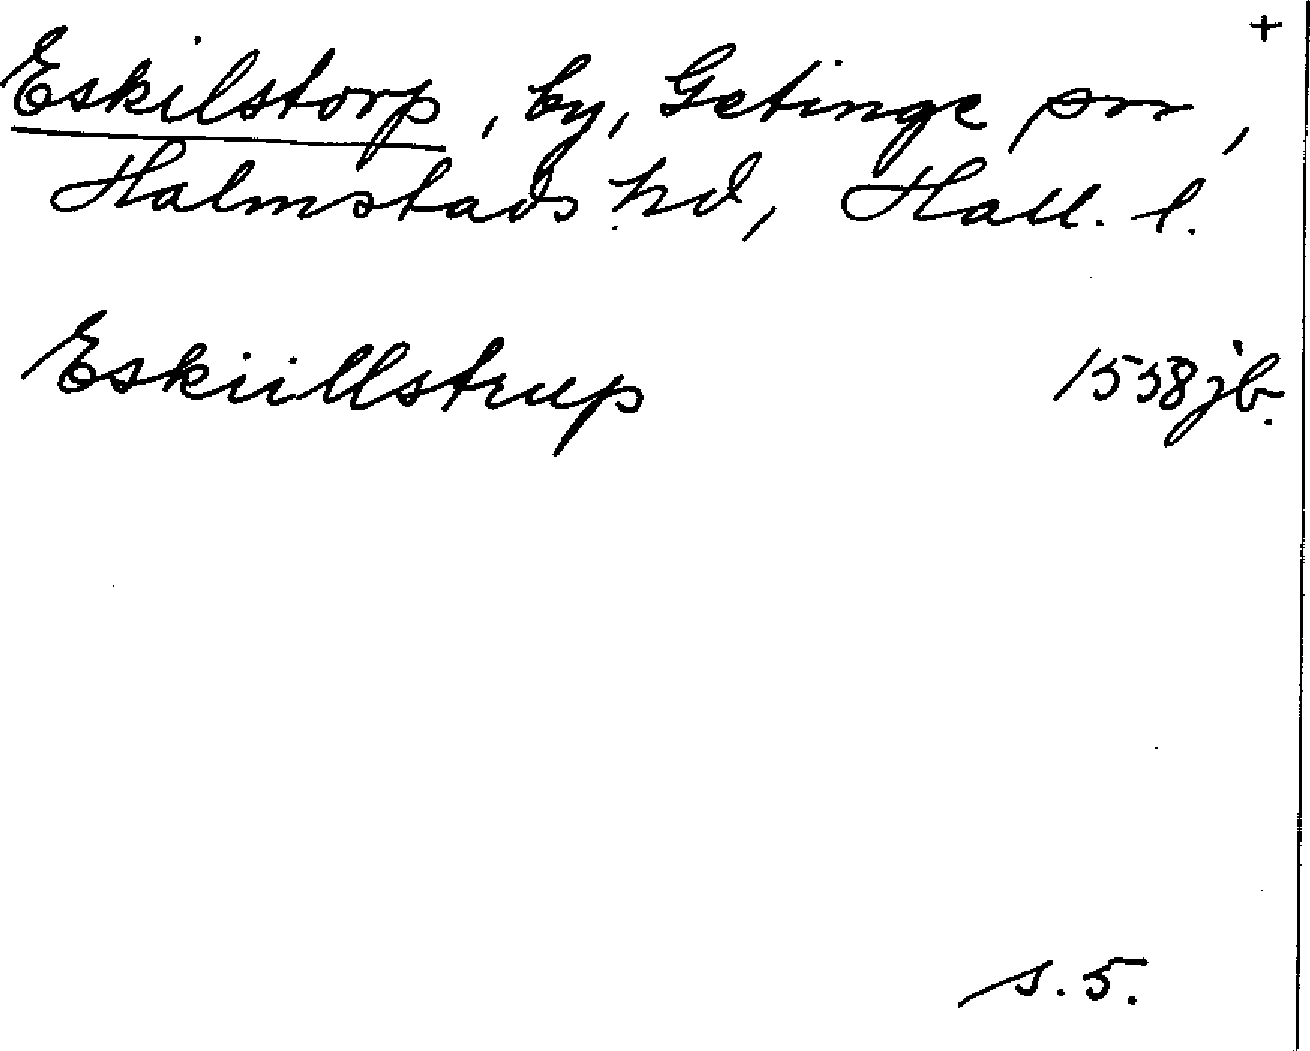 +
Eskilstorp, by, Getinge srn,
Halmstads hd, Hall. l.
Eskiillstrup 1538 jb.
s. 5.